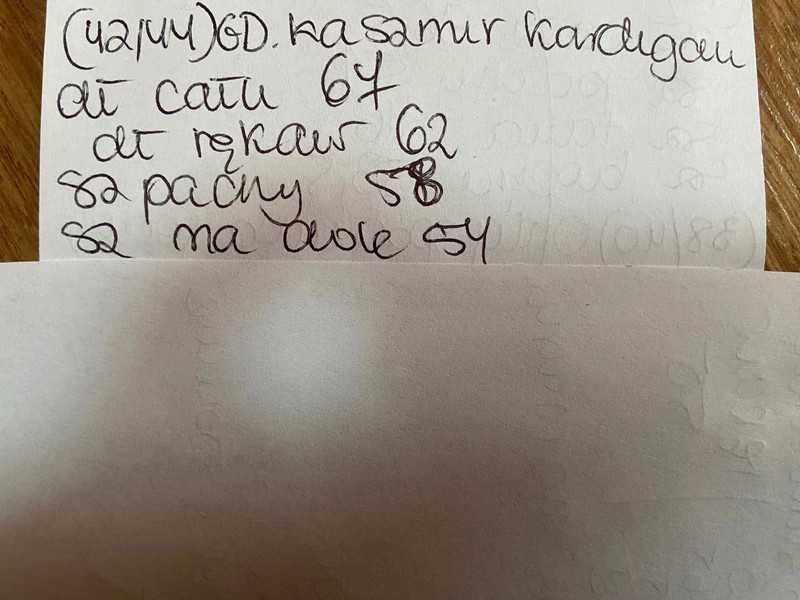 (42/44) GD. kaszmir kardigan
dł cału 67
dł rękaw 62
sz pachy 58
sz na dole 54